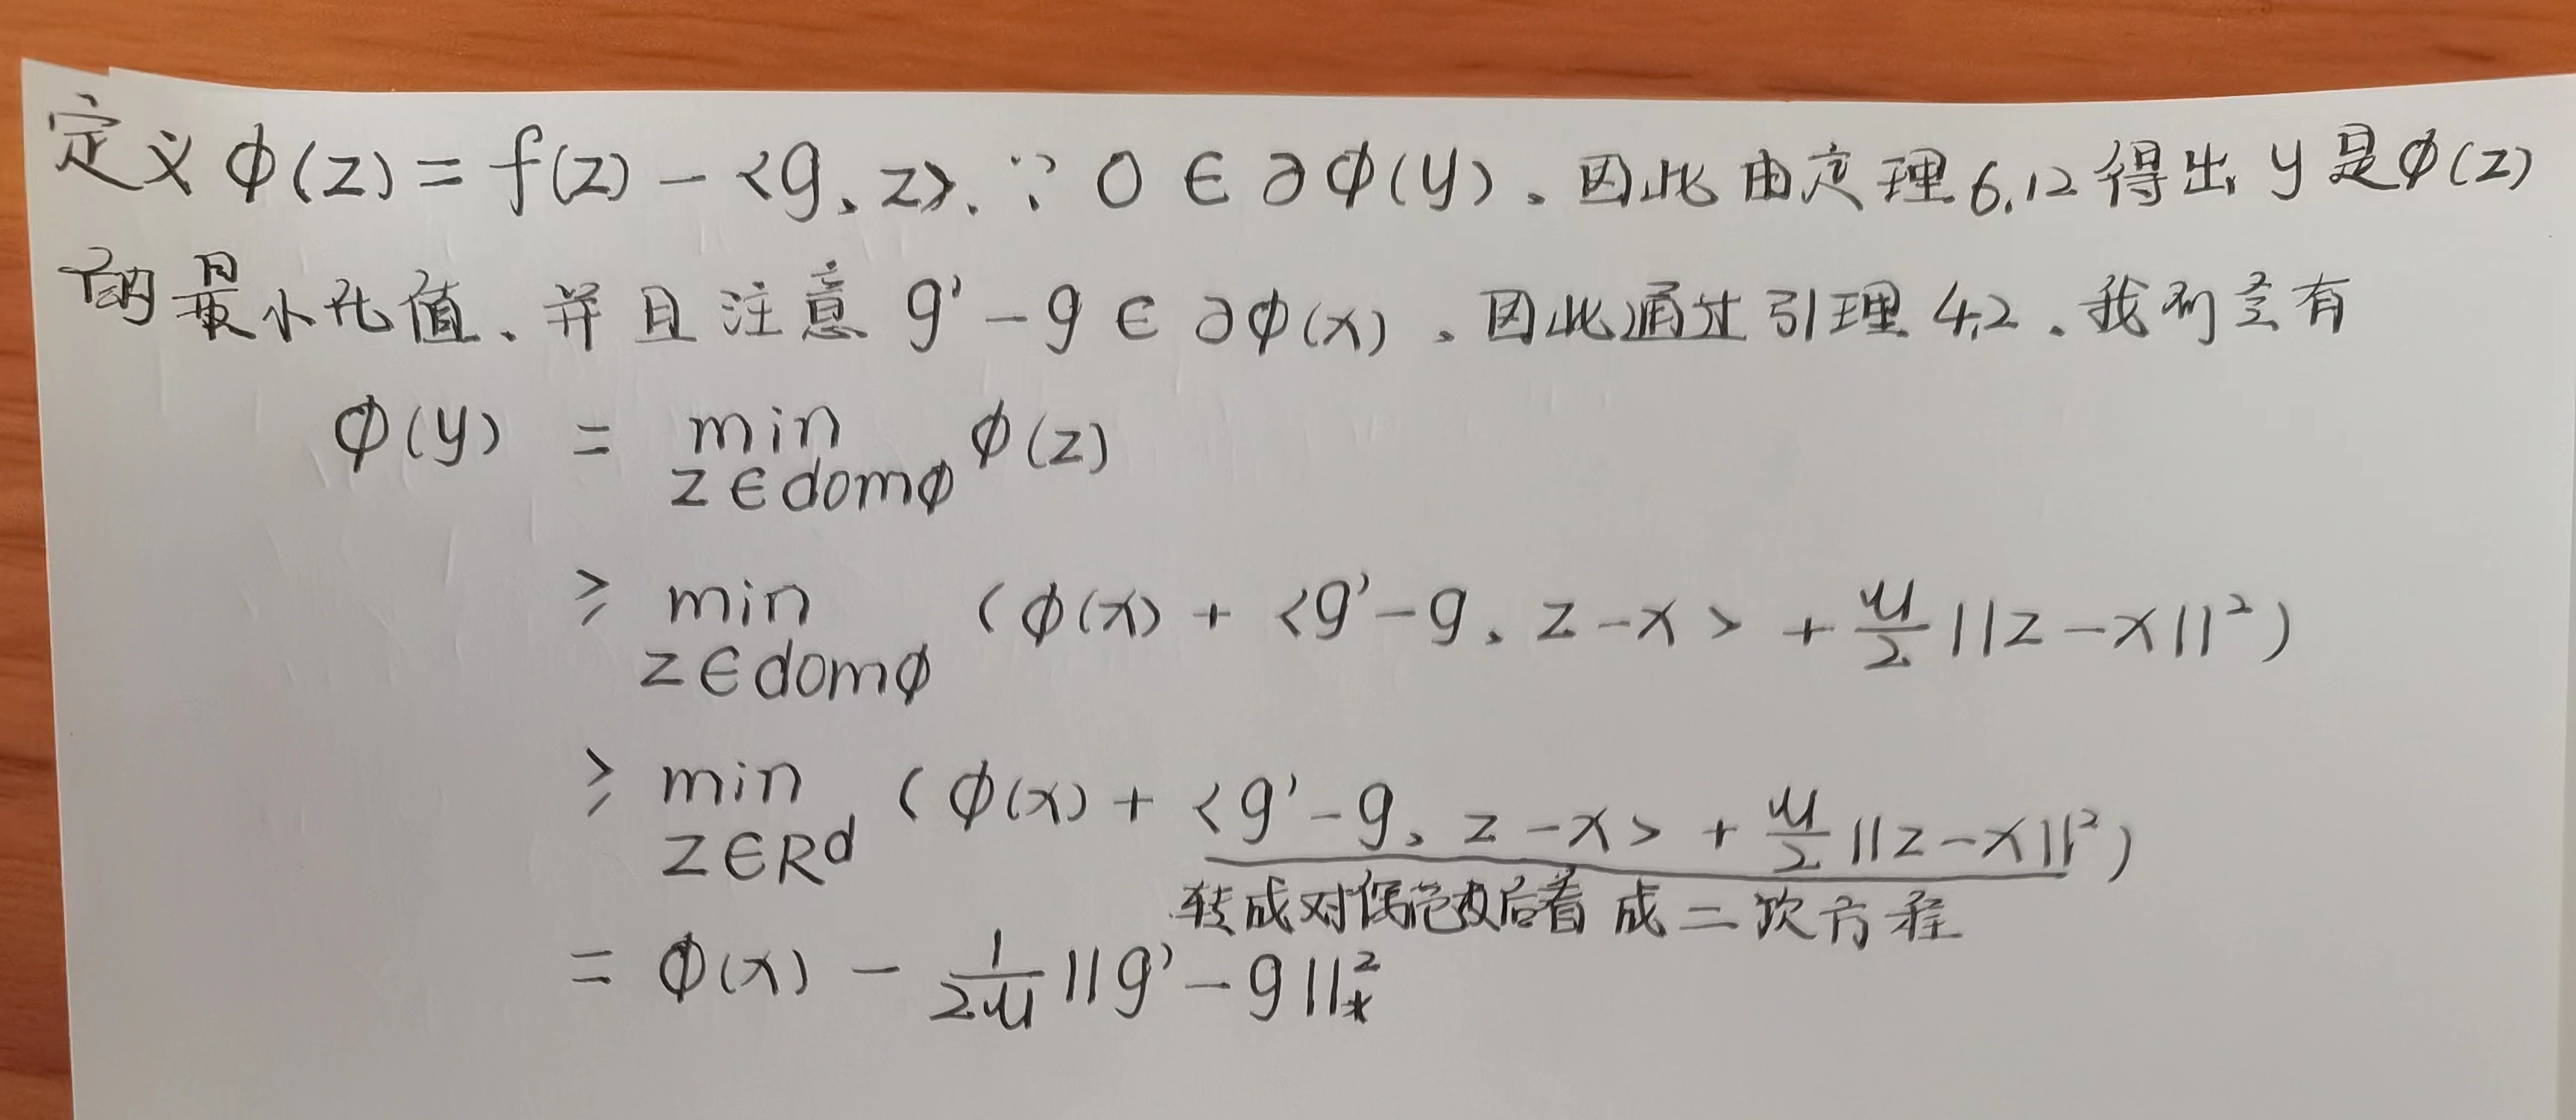 定义 ϕ(z) = f(z) - <g, z>. ∵ 0 ∈ ∂ϕ(y), 因此由定理6.12得出, y是ϕ(z)
的最小化值, 并且注意 g' - g ∈ ∂ϕ(x), 因此通过引理4.2, 我们会有
ϕ(y) = min ϕ(z)
z∈domϕ
≥ min (ϕ(x) + <g' - g, z - x> + μ/2 ||z - x||²)
z∈domϕ
≥ min (ϕ(x) + <g' - g, z - x> + μ/2 ||z - x||²)
z∈Rd
转成对偶范数后看成二次方程
= ϕ(x) - 1/2μ ||g' - g||²*